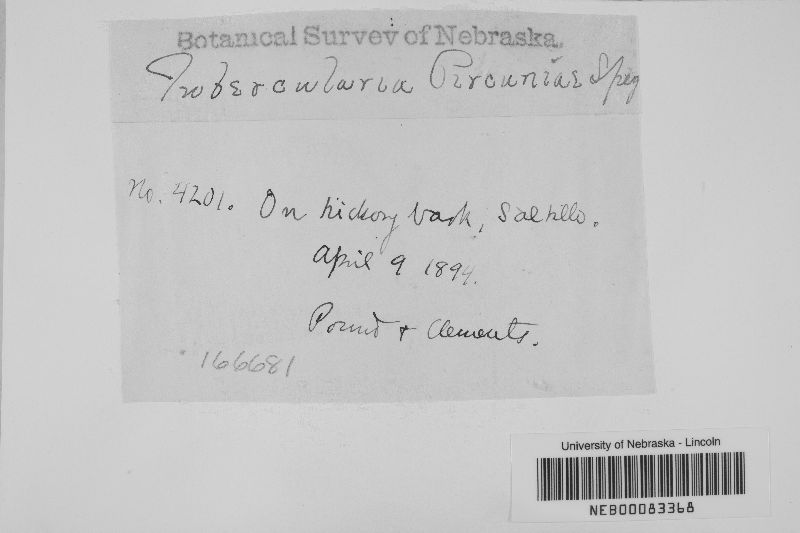 Botanical Survey of Nebraska.
Tubercularia Pircuniae Speg
No. 4201. On hickory bark, Saltillo.
April 9 1894.
Pound + Clements.
166681
University of Nebraska - Lincoln
NEB00083368